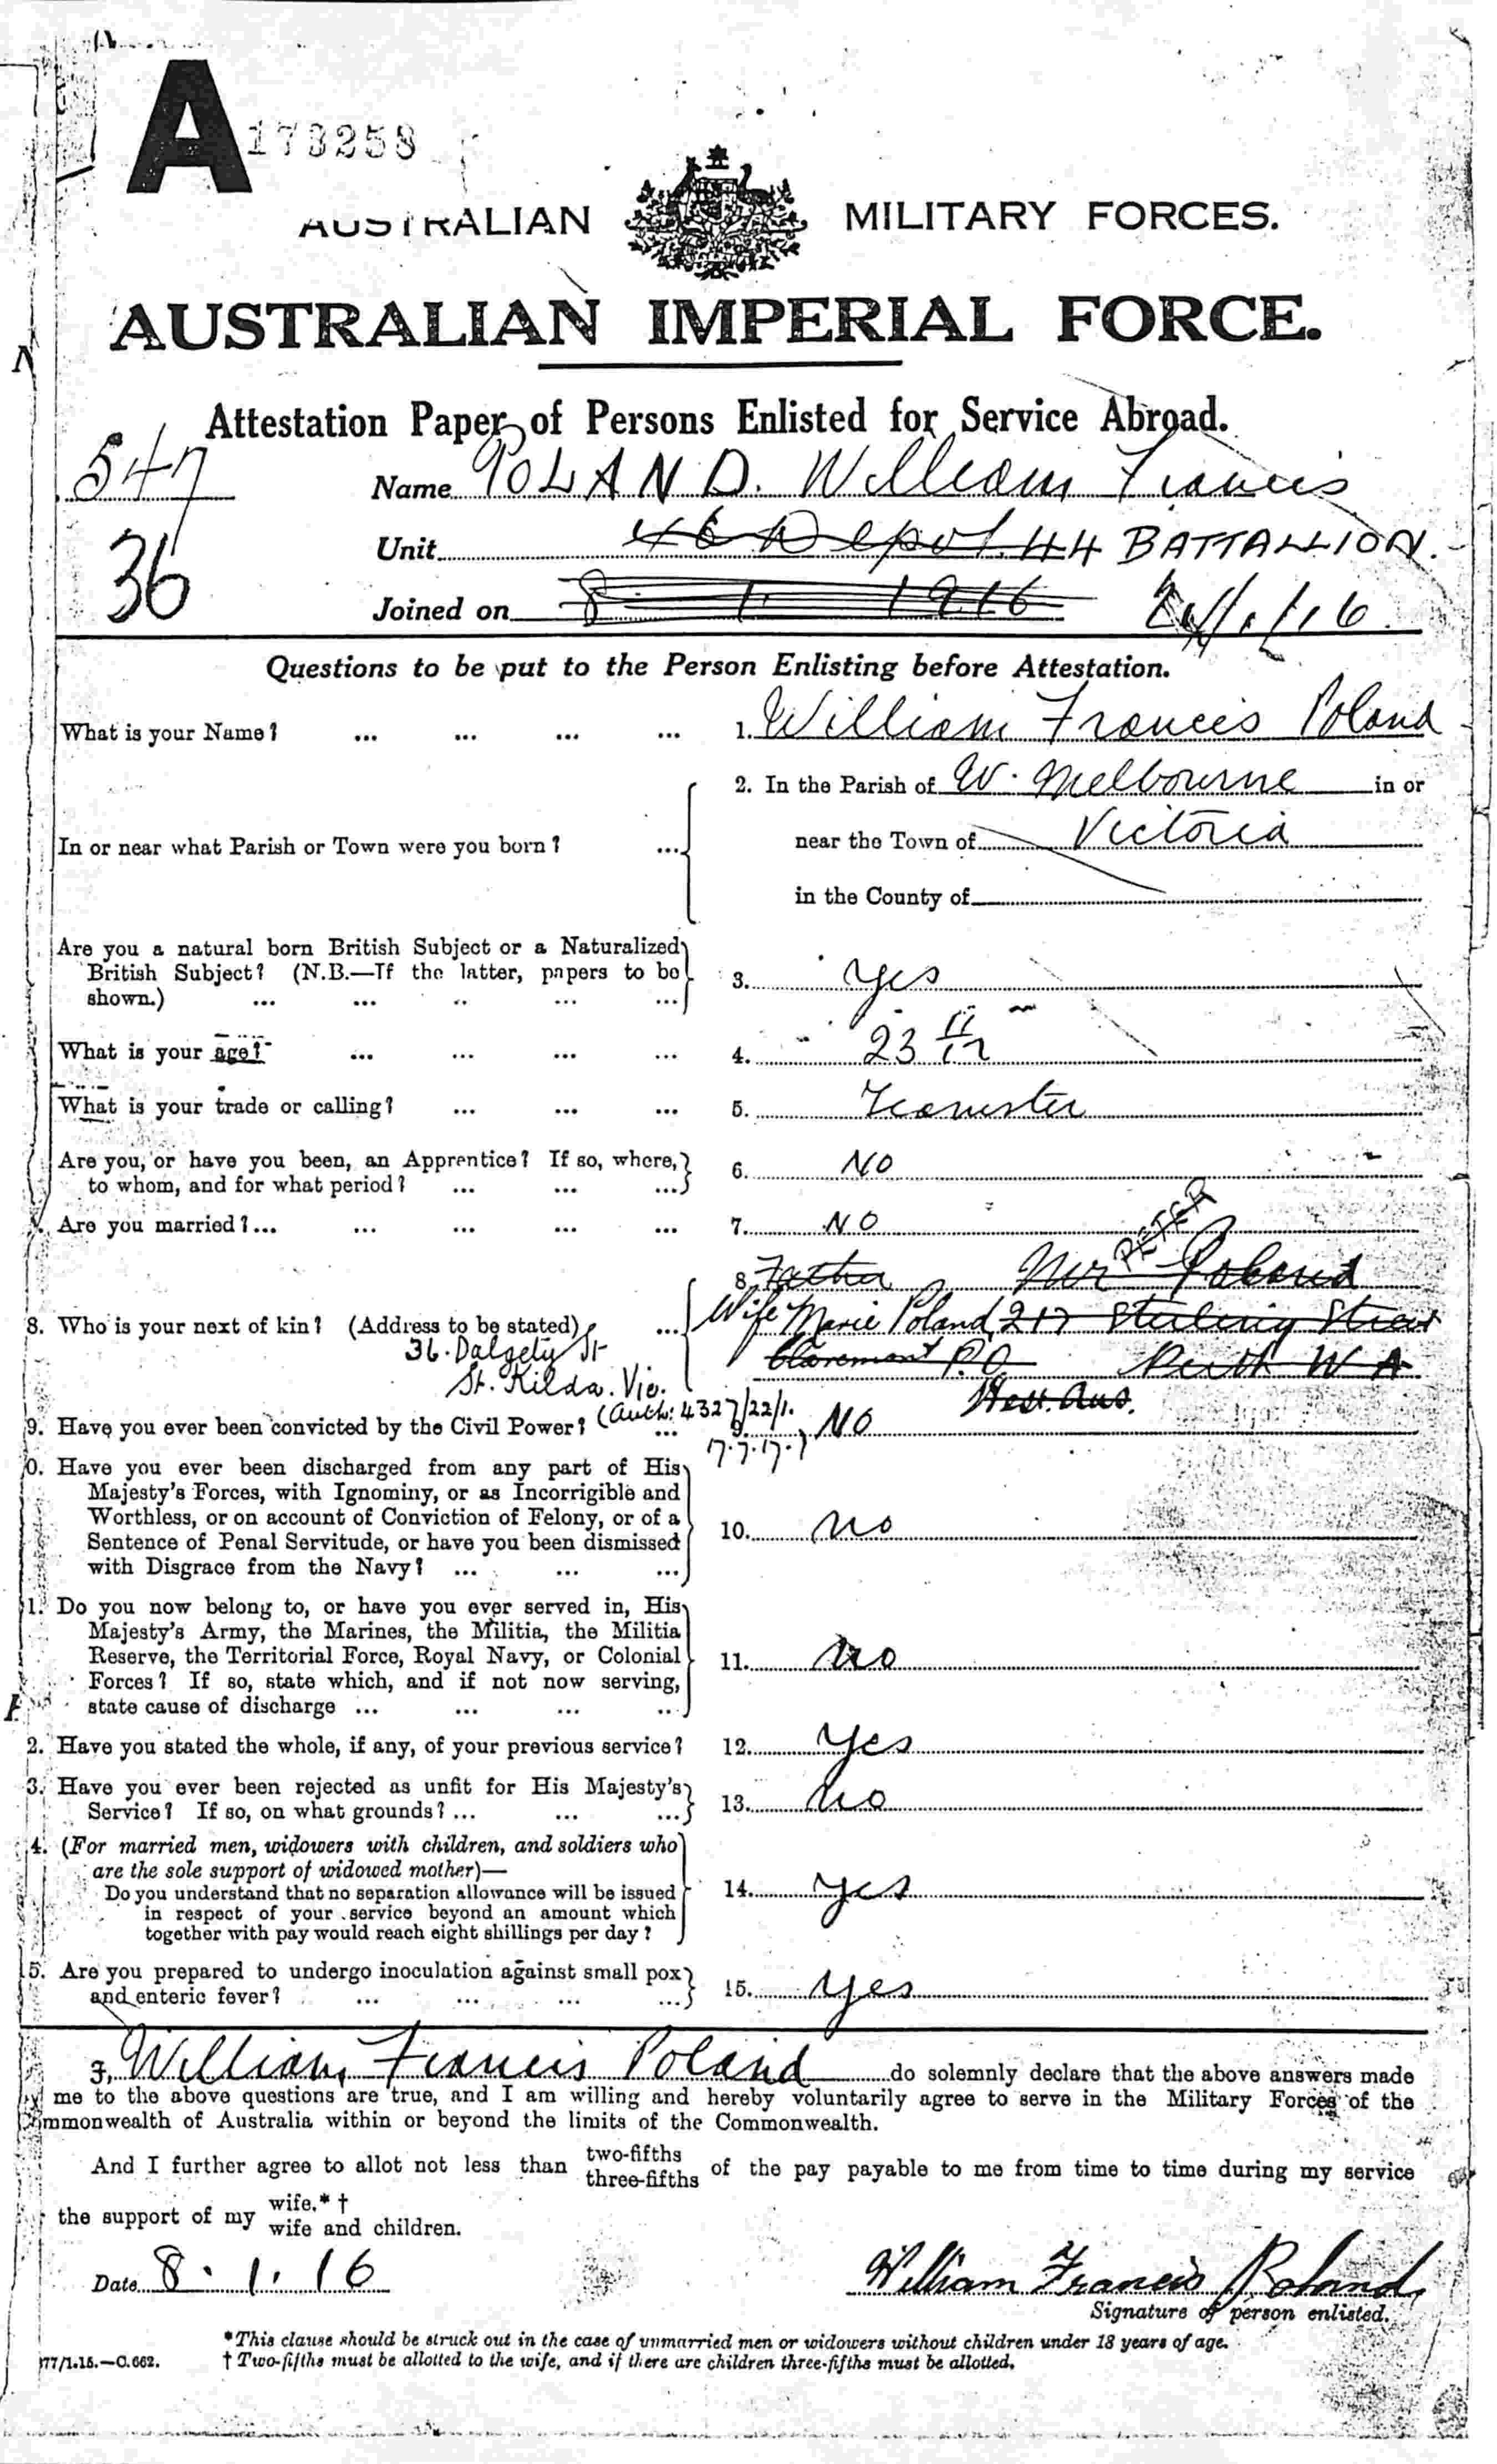 A 173258
AUSTRALIAN MILITARY FORCES.
AUSTRALIAN IMPERIAL FORCE.
Attestation Paper of Persons Enlisted for Service Abroad.
547
Name POLAND. William Francis
36
Unit Depot 44 BATTALLION.
Joined on 8 1. 1916 /1/16
Questions to be put to the Person Enlisting before Attestation.
What is your Name? ... ... ... ... 1. William Francis Poland
In or near what Parish or Town were you born? ... 2. In the Parish of W. Melbourne in or
near the Town of Victoria
in the County of
Are you a natural born British Subject or a Naturalized
British Subject? (N.B.—If the latter, papers to be
shown.) ... ... .. ... ... 3. yes
What is your age? ... ... ... ... 4. 23 11/12
What is your trade or calling? ... ... ... 5. Teamster
Are you, or have you been, an Apprentice? If so, where,
to whom, and for what period? ... ... ... 6. NO
Are you married?... ... ... ... ... 7. NO
PETER
8. Father Mr Poland
8. Who is your next of kin? (Address to be stated) ... Wife Marie Poland, 217 Sterling Street
36. Dalgety St Claremont P.O. Perth W A
St. Kilda. Vic. West. Aus.
(Auth: 4327/22/1.
17.7.17.)
9. Have you ever been convicted by the Civil Power? ... 9. NO
0. Have you ever been discharged from any part of His
Majesty's Forces, with Ignominy, or as Incorrigible and
Worthless, or on account of Conviction of Felony, or of a
Sentence of Penal Servitude, or have you been dismissed
with Disgrace from the Navy? ... ... ... 10. no
1. Do you now belong to, or have you ever served in, His
Majesty's Army, the Marines, the Militia, the Militia
Reserve, the Territorial Force, Royal Navy, or Colonial
Forces? If so, state which, and if not now serving,
state cause of discharge ... ... ... .. 11. no
2. Have you stated the whole, if any, of your previous service? 12. yes
3. Have you ever been rejected as unfit for His Majesty's
Service? If so, on what grounds? ... ... ... 13. no
4. (For married men, widowers with children, and soldiers who
are the sole support of widowed mother)—
Do you understand that no separation allowance will be issued
in respect of your service beyond an amount which
together with pay would reach eight shillings per day? 14. yes
5. Are you prepared to undergo inoculation against small pox
and enteric fever? ... ... ... ... 15. yes
I, William Francis Poland do solemnly declare that the above answers made
by me to the above questions are true, and I am willing and hereby voluntarily agree to serve in the Military Forces of the
Commonwealth of Australia within or beyond the limits of the Commonwealth.
And I further agree to allot not less than two-fifths
three-fifths of the pay payable to me from time to time during my service
the support of my wife.* †
wife and children.
Date 8.1.16 William Francis Poland
Signature of person enlisted.
*This clause should be struck out in the case of unmarried men or widowers without children under 18 years of age.
77/1.15.—C.662. † Two-fifths must be allotted to the wife, and if there are children three-fifths must be allotted.